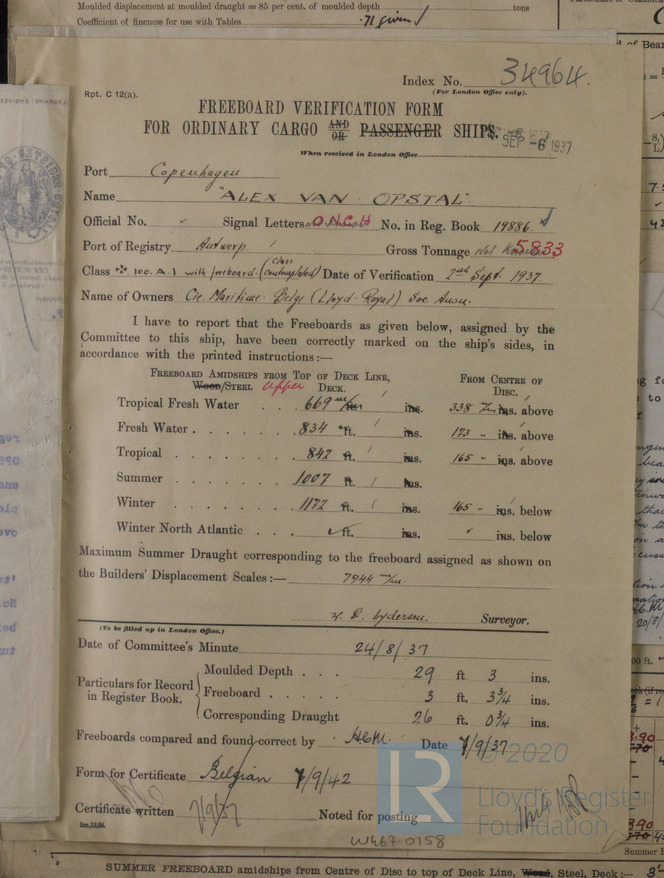 Moulded displacement at moulded draught = 85 per cent. of moulded depth tons
Coefficient of fineness for use with Tables .71 given
Index No. 34964.
(For London Office only).
Rpt. C 12(a).
FREEBOARD VERIFICATION FORM
FOR ORDINARY CARGO AND OR PASSENGER SHIPS.
SEP -6 1937
When received in London Office
Port Copenhagen
Name "ALEX VAN OPSTAL"
Official No. Signal Letters O.N.C.H No. in Reg. Book 19886
Port of Registry Antwerp Gross Tonnage Not Known 5833
Class ✠ 100.A.1 with freeboard (Class contemplated) Date of Verification 2nd Sept. 1937.
Name of Owners Cie Maritime Belge (Lloyd Royal) Soc. Anon.
I have to report that the Freeboards as given below, assigned by the
Committee to this ship, have been correctly marked on the ship's sides, in
accordance with the printed instructions:—
FREEBOARD AMIDSHIPS FROM TOP OF DECK LINE, FROM CENTRE OF
Wood/STEEL Upper DECK. DISC.
Tropical Fresh Water . . . 669 m/m ins. 338 m/m ins. above
Fresh Water . . . . . . . 834 ft. ins. 173 - ins. above
Tropical . . . . . . . 842 ft. ins. 165 - ins. above
Summer . . . . . . . 1007 ft. ins.
Winter . . . . . . . 1172 ft. ins. 165 - ins. below
Winter North Atlantic . . . ft. ins. ins. below
Maximum Summer Draught corresponding to the freeboard assigned as shown on
the Builders' Displacement Scales:— 7944 m/m.
Surveyor.
(To be filled up in London Office.)
Date of Committee's Minute 24/8/37
Particulars for Record in Register Book.
Moulded Depth . . . 29 ft. 3 ins.
Freeboard . . . . 3 ft. 3¾ ins.
Corresponding Draught 26 ft. 0¼ ins.
Freeboards compared and found correct by Date 7/9/37
Form for Certificate Belgian 7/9/42
Certificate written 7/9/37 Noted for posting
W467-0158
© 2020
LR
Lloyd's Register
Foundation
SUMMER FREEBOARD amidships from Centre of Disc to top of Deck Line, Wood, Steel, Deck:—